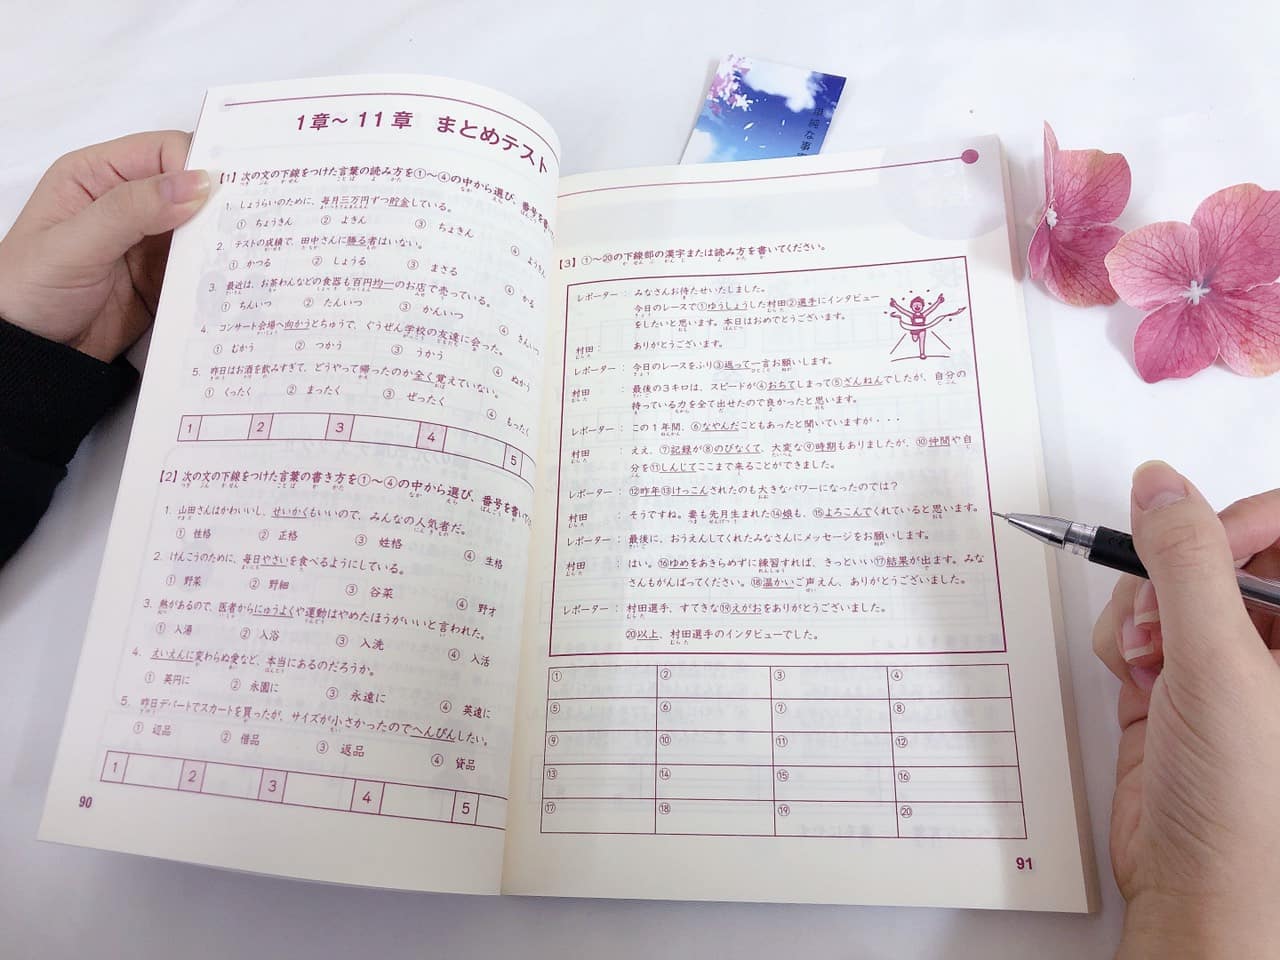 1章〜11章 まとめテスト
【1】次の文の下線をつけた言葉の読み方を①〜④の中から選び、番号を書
1. しょうらいのために、毎月三万円ずつ貯金している。
① ちょうきん ② よきん ③ ちょきん ④ ようきん
2. テストの成績で、田中さんに勝る者はいない。
① かつる ② しょうる ③ まさる ④ かる
3. 最近は、お茶わんなどの食器も百円均一のお店で売っている。
① ちんいつ ② たんいつ ③ かんいつ ④ きんいつ
4. コンサート会場へ向かうとちゅうで、ぐうぜん学校の友達に会った。
① むかう ② つかう ③ うかう ④ ぬかう
5. 昨日はお酒を飲みすぎて、どうやって帰ったのか全く覚えていない。
① くったく ② まったく ③ ぜったく ④ もったく
1 2 3 4 5
【2】次の文の下線をつけた言葉の書き方を①〜④の中から選び、番号を書いて
1. 山田さんはかわいいし、せいかくもいいので、みんなの人気者だ。
① 性格 ② 正格 ③ 姓格 ④ 生格
2. けんこうのために、毎日やさいを食べるようにしている。
① 野菜 ② 野細 ③ 谷菜 ④ 野才
3. 熱があるので、医者からにゅうよくや運動はやめたほうがいいと言われた。
① 入湯 ② 入浴 ③ 入洗 ④ 入活
4. えいえんに変わらぬ愛など、本当にあるのだろうか。
① 英円に ② 永園に ③ 永遠に ④ 英遠に
5. 昨日デパートでスカートを買ったが、サイズが小さかったのでへんぴんしたい。
① 辺品 ② 借品 ③ 返品 ④ 貸品
1 2 3 4 5
90
【3】①〜⑳の下線部の漢字または読み方を書いてください。
レポーター：みなさんお待たせいたしました。
今日のレースで①ゆうしょうした村田②選手にインタビュー
をしたいと思います。本日はおめでとうございます。
村田：ありがとうございます。
レポーター：今日のレースをふり③返って一言お願いします。
村田：最後の3キロは、スピードが④おちてしまって⑤ざんねんでしたが、自分の
持っている力を全て出せたので良かったと思います。
レポーター：この1年間、⑥なやんだこともあったと聞いていますが・・・
村田：ええ、⑦記録が⑧のびなくて、大変な⑨時期もありましたが、⑩仲間や自
分を⑪しんじてここまで来ることができました。
レポーター：⑫昨年⑬けっこんされたのも大きなパワーになったのでは？
村田：そうですね。妻も先月生まれた⑭娘も、⑮よろこんでくれていると思います。
レポーター：最後に、おうえんしてくれたみなさんにメッセージをお願いします。
村田：はい。⑯ゆめをあきらめずに練習すれば、きっといい⑰結果が出ます。みな
さんもがんばってください。⑱温かいご声えん、ありがとうございました。
レポーター：村田選手、すてきな⑲えがおをありがとうございました。
⑳以上、村田選手のインタビューでした。
① ② ③ ④
⑤ ⑥ ⑦ ⑧
⑨ ⑩ ⑪ ⑫
⑬ ⑭ ⑮ ⑯
⑰ ⑱ ⑲ ⑳
91
単純な事